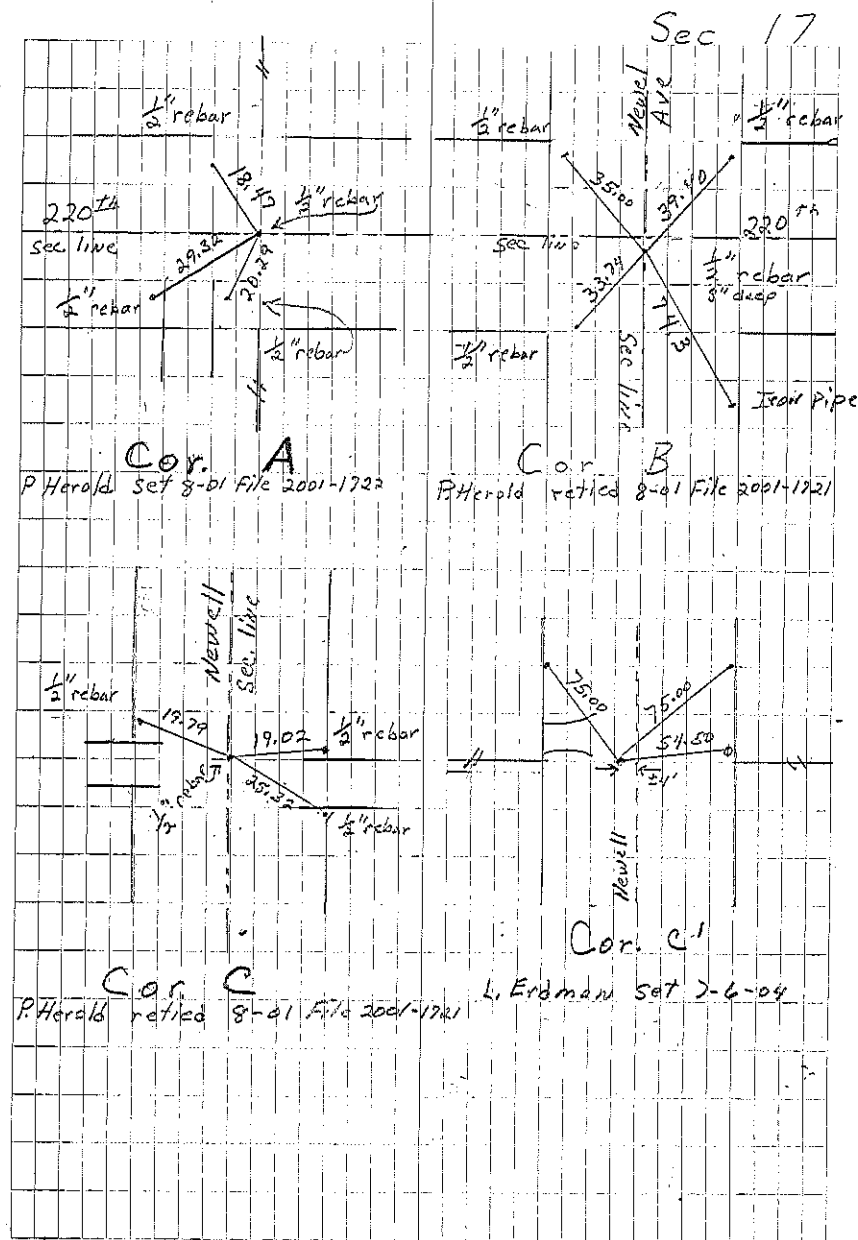 Sec 17
1/2" rebar
18.47
1/2" rebar
220th
sec line
29.32
20.29
1/2" rebar
1/2" rebar
Cor. A
P Herold set 8-01 File 2001-1722
Newel
Ave
1/2" rebar
1/2" rebar
35.00
39.40
sec line
220th
33.74
1/2" rebar
8" deep
74.3
1/2" rebar
Sec line
Iron Pipe
Cor B
P.Herold retied 8-01 File 2001-1721
Newell
Sec. line
1/2" rebar
19.79
19.02
1/2" rebar
1/2" rebar
25.32
1/2" rebar
Cor. C
P.Herold retied 8-01 File 2001-1721
75.00
75.00
54.50
±4'
Newell
Cor. C'
L. Erdman set 7-6-04